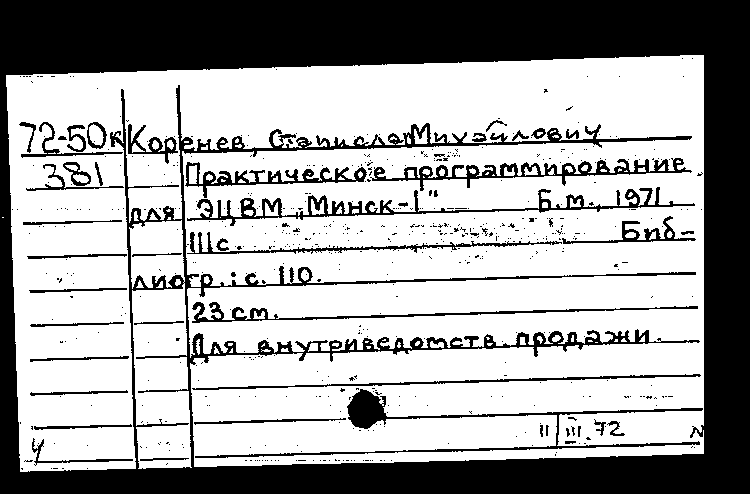 72-50к Коренев, Станислав Михайлович
381 Практическое программирование
для ЭЦВМ „Минск-1". Б.м., 1971.
111с. Биб-
лиогр.: с. 110.
23 см.
Для внутриведомств. продажи.
11 III.72